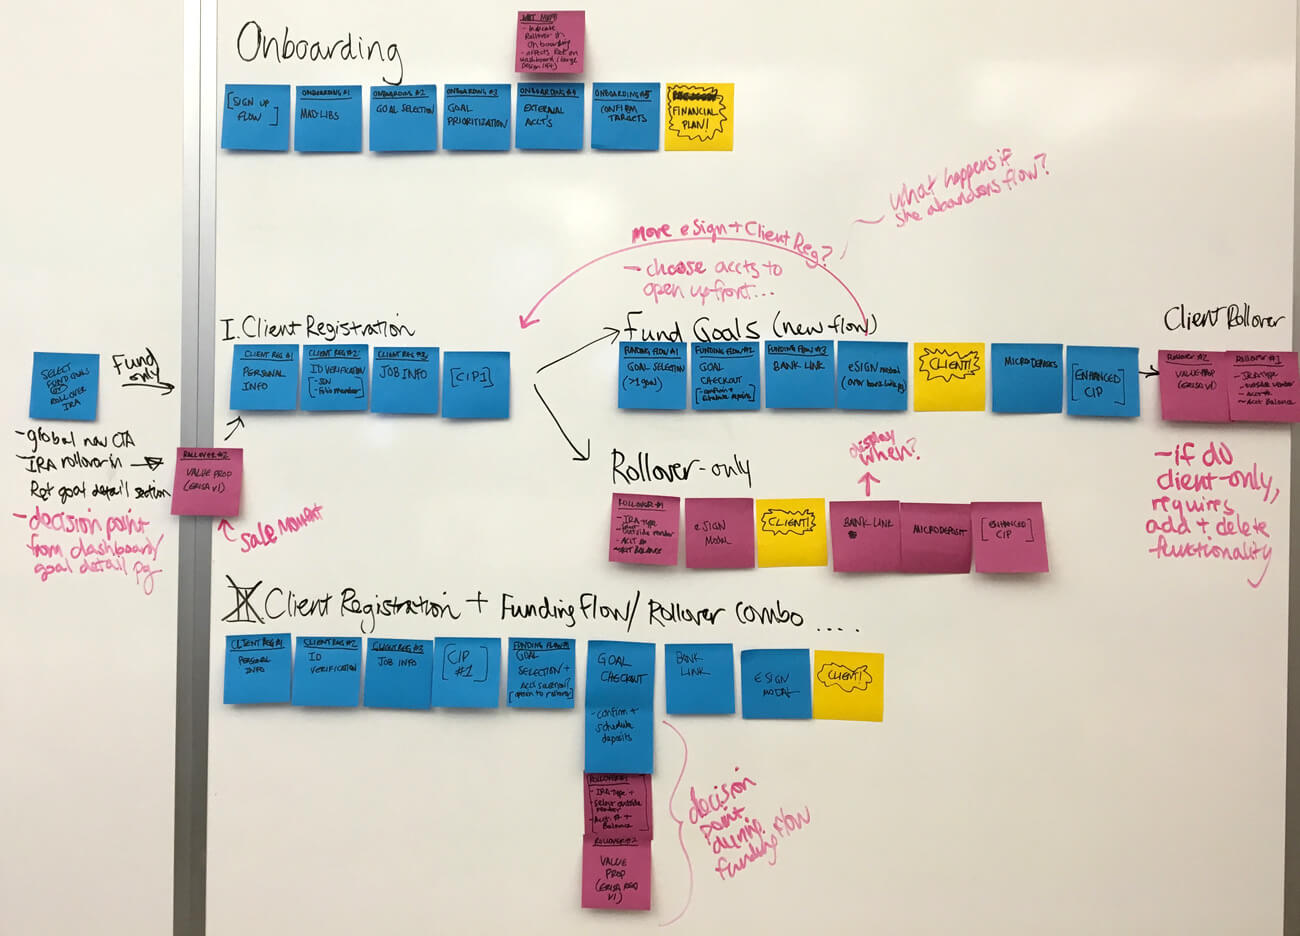 Onboarding
NOT MVP!
- Indicate
Rollover in
Onboarding
- affects Ret on
dashboard (large
Design lift)
[SIGN UP
FLOW]
ONBOARDING #1
MAD-LIBS
ONBOARDING #2
GOAL SELECTION
ONBOARDING #3
GOAL
PRIORITIZATION
ONBOARDING #4
EXTERNAL
ACCTS
ONBOARDING #5
CONFIRM
TARGETS
FINANCIAL
PLAN!
what happens if
she abandons flow?
More eSign + Client Reg?
- choose accts to
open upfront...
SELECT
FUND GOALS
OR
ROLLOVER
IRA
Fund
only
- global nav CTA
IRA rollover in
Ret goal detail section
- decision point
from dashboard/
goal detail pg
ROLLOVER #2
VALUE PROP
(ERISA V1)
sale moment
I. Client Registration
CLIENT REG #1
PERSONAL
INFO
CLIENT REG #2
ID VERIFICATION
- SSN
CLIENT REG #3
JOB INFO
[CIP 1]
Fund Goals (new flow)
FUNDING FLOW #1
GOAL SELECTION
(>1 goal)
FUNDING FLOW #2
GOAL
CHECKOUT
- confirm +
schedule deposits
FUNDING FLOW #3
BANK LINK
eSIGN modal
(over bank link pg)
CLIENT!
MICRODEPOSITS
[ENHANCED
CIP]
Client Rollover
ROLLOVER #2
VALUE PROP
(ERISA V1)
ROLLOVER #1
- IRA TYPE
- outside vendor
- Acct #
- Acct Balance
- if do
client-only,
requires
add + delete
functionality
Rollover-only
display
when?
ROLLOVER #1
- IRA Type
- outside vendor
- ACCT #
- ACCT BALANCE
eSIGN
MODAL
CLIENT!
BANK LINK
MICRODEPOSIT
[ENHANCED
CIP]
II Client Registration + Funding Flow/ Rollover combo ....
CLIENT REG #1
PERSONAL
INFO
CLIENT REG #2
ID
VERIFICATION
CLIENT REG #3
JOB INFO
[CIP
#1]
FUNDING FLOW #1
GOAL
SELECTION +
ACCT SELECTION?
[option to rollover]
GOAL
CHECKOUT
- confirm +
schedule
deposits
BANK
LINK
E SIGN
MODAL
CLIENT!
ROLLOVER #1
- IRA Type +
- Select outside
vendor
- Acct # +
Balance
ROLLOVER #2
VALUE
PROP
(ERISA REQ
V1)
decision
point
during
funding flow